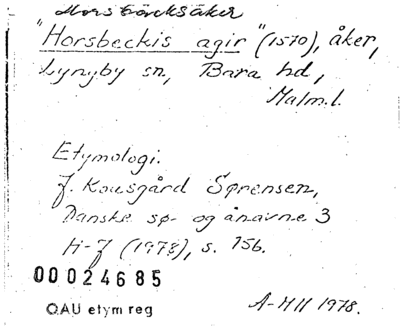 Horsbäcksåker
"Horsbeckis agir" (1570), åker,
Lyngby sn, Bara hd,
Malm.l.
Etymologi.
J. Kousgård Sørensen,
Danske sø- og ånavne 3
H-J (1978), s. 156.
00024685
OAU etym reg
A-MH 1978.